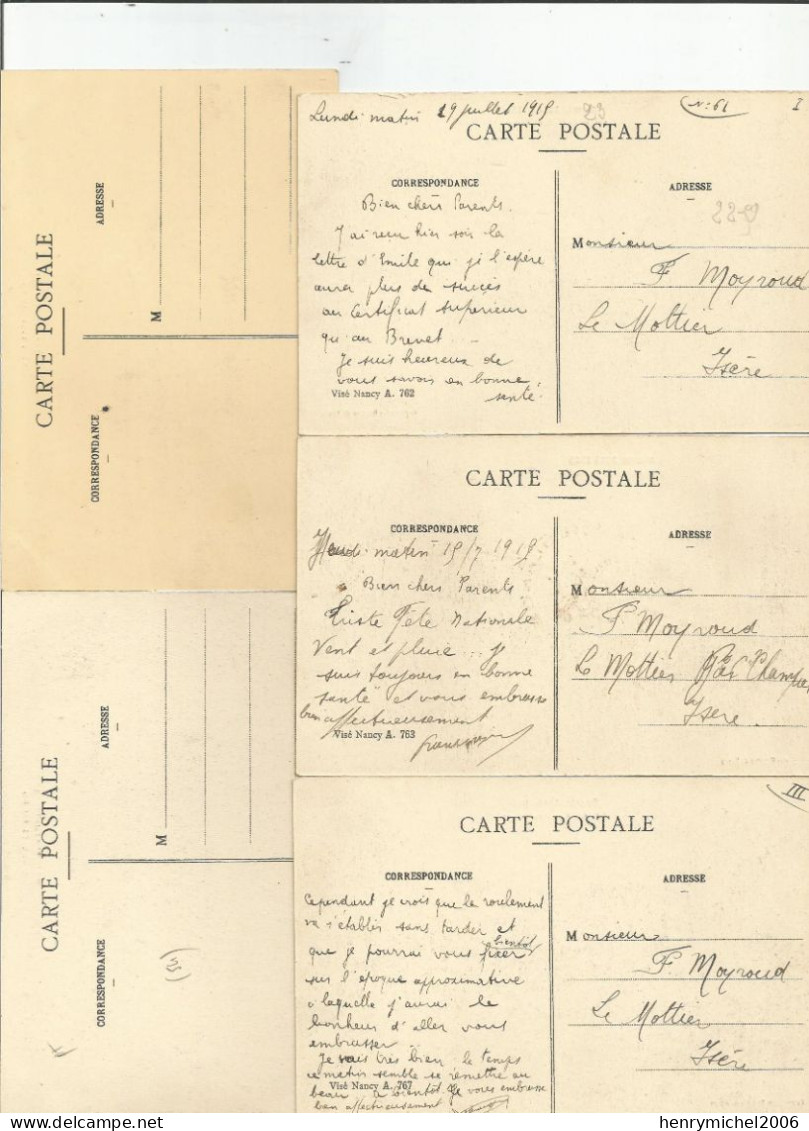 CARTE POSTALE
CORRESPONDANCE
ADRESSE
M
CARTE POSTALE
CORRESPONDANCE
ADRESSE
M
Lundi matin 19 juillet 1915
23
N: 61
I
CARTE POSTALE
CORRESPONDANCE
Bien chers Parents.
J'ai reçu hier soir la
lettre d'Emile qui je l'espère
aura plus de succès
au Certificat Superieur
qu'au Brevet...
Je suis heureux de
vous savoir en bonne
santé.
Visé Nancy A. 762
ADRESSE
Monsieur
F Moyroud
Le Mottier
Isère
CARTE POSTALE
CORRESPONDANCE
Jeudi matin 15/7 1915
Bien chers Parents
Triste Fête Nationale
Vent et pluie... je
suis toujours en bonne
santé et vous embrasse
bien affectueusement
Visé Nancy A. 763
ADRESSE
Monsieur
F Moyroud
Le Mottier
Isère.
III
CARTE POSTALE
CORRESPONDANCE
Cependant je crois que le roulement
va s'établir sans tarder et
que je pourrai bientôt vous fixer
sur l'époque approximative
à laquelle j'aurai le
bonheur d'aller vous
embrasser...
Je vais très bien le temps
ce matin semble se remettre au
beau à bientôt je vous embrasse
bien affectueusement
Visé Nancy A. 767
ADRESSE
Monsieur
F. Moyroud
Le Mottier
Isère
delcampe.net
henrymichel2006